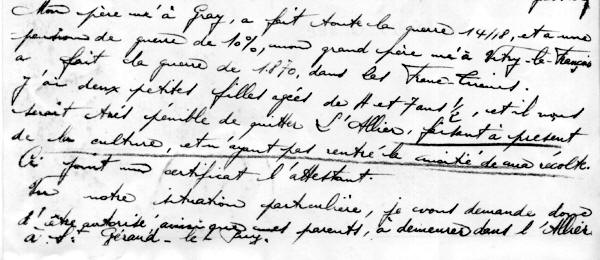 Mon père né à Gray, a fait toute la guerre 14/18, et a une
pension de guerre de 10%, mon grand père né à Vitry-le-François
a fait la guerre de 1870, dans les Franc-Tireurs.
J'ai deux petites filles agées de 4 et 7 ans 1/2, et il nous
serait très pénible de quitter l'Allier, faisant à présent
de la culture, et n'ayant pas rentré la moitié de ma récolte.
Ci joint un certificat l'attestant.
Vu notre situation particulière, je vous demande donc
d'être autorisé ainsi que mes parents, à demeurer dans l'Allier
à St Gérand-le-Puy.